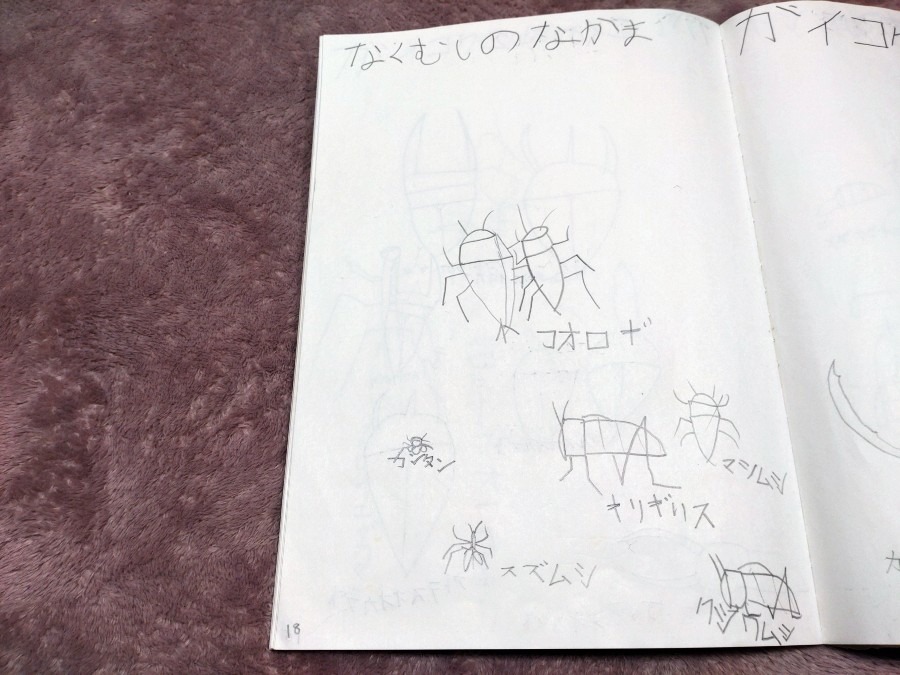 なくむしのなかま
ガイコ
コオロギ
カンタン
マツムシ
キリギリス
スズムシ
クツワムシ
18